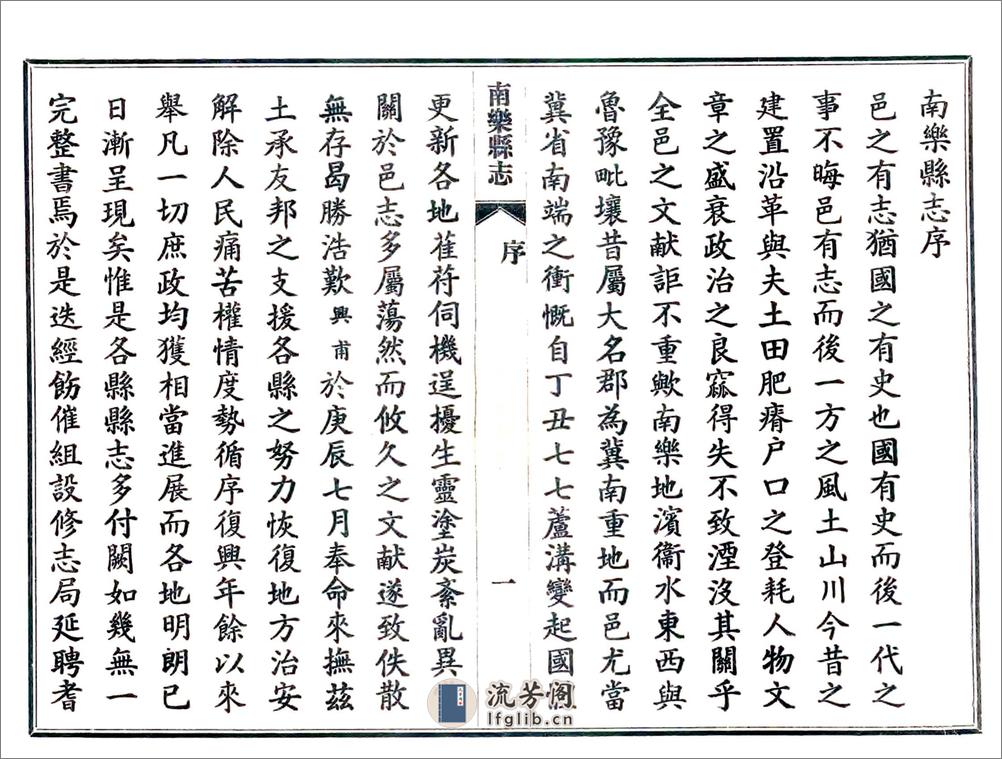 南樂縣志序
邑之有志猶國之有史也國有史而後一代之
事不晦邑有志而後一方之風土山川今昔之
建置沿革與夫土田肥瘠户口之登耗人物文
章之盛衰政治之良窳得失不致湮沒其關乎
全邑之文献詎不重歟南樂地濱衞水東西與
魯豫毗壤昔屬大名郡為冀南重地而邑尤當
冀省南端之衝慨自丁丑七七蘆溝變起國
南樂縣志
序
一
更新各地萑苻伺機逞擾生靈塗炭紊亂異
關於邑志多屬蕩然而攸久之文献遂致佚散
無存曷勝浩歎興甫於庚辰七月奉命來撫茲
土承友邦之支援各縣之努力恢復地方治安
解除人民痛苦權情度勢循序復興年餘以來
舉凡一切庶政均獲相當進展而各地明朗已
日漸呈現矣惟是各縣縣志多付闕如幾無一
完整書焉於是迭經飭催組設修志局延聘耆
流芳阁
lfglib.cn